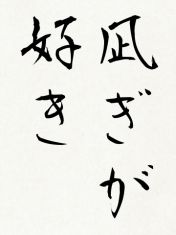 凪ぎが
好き